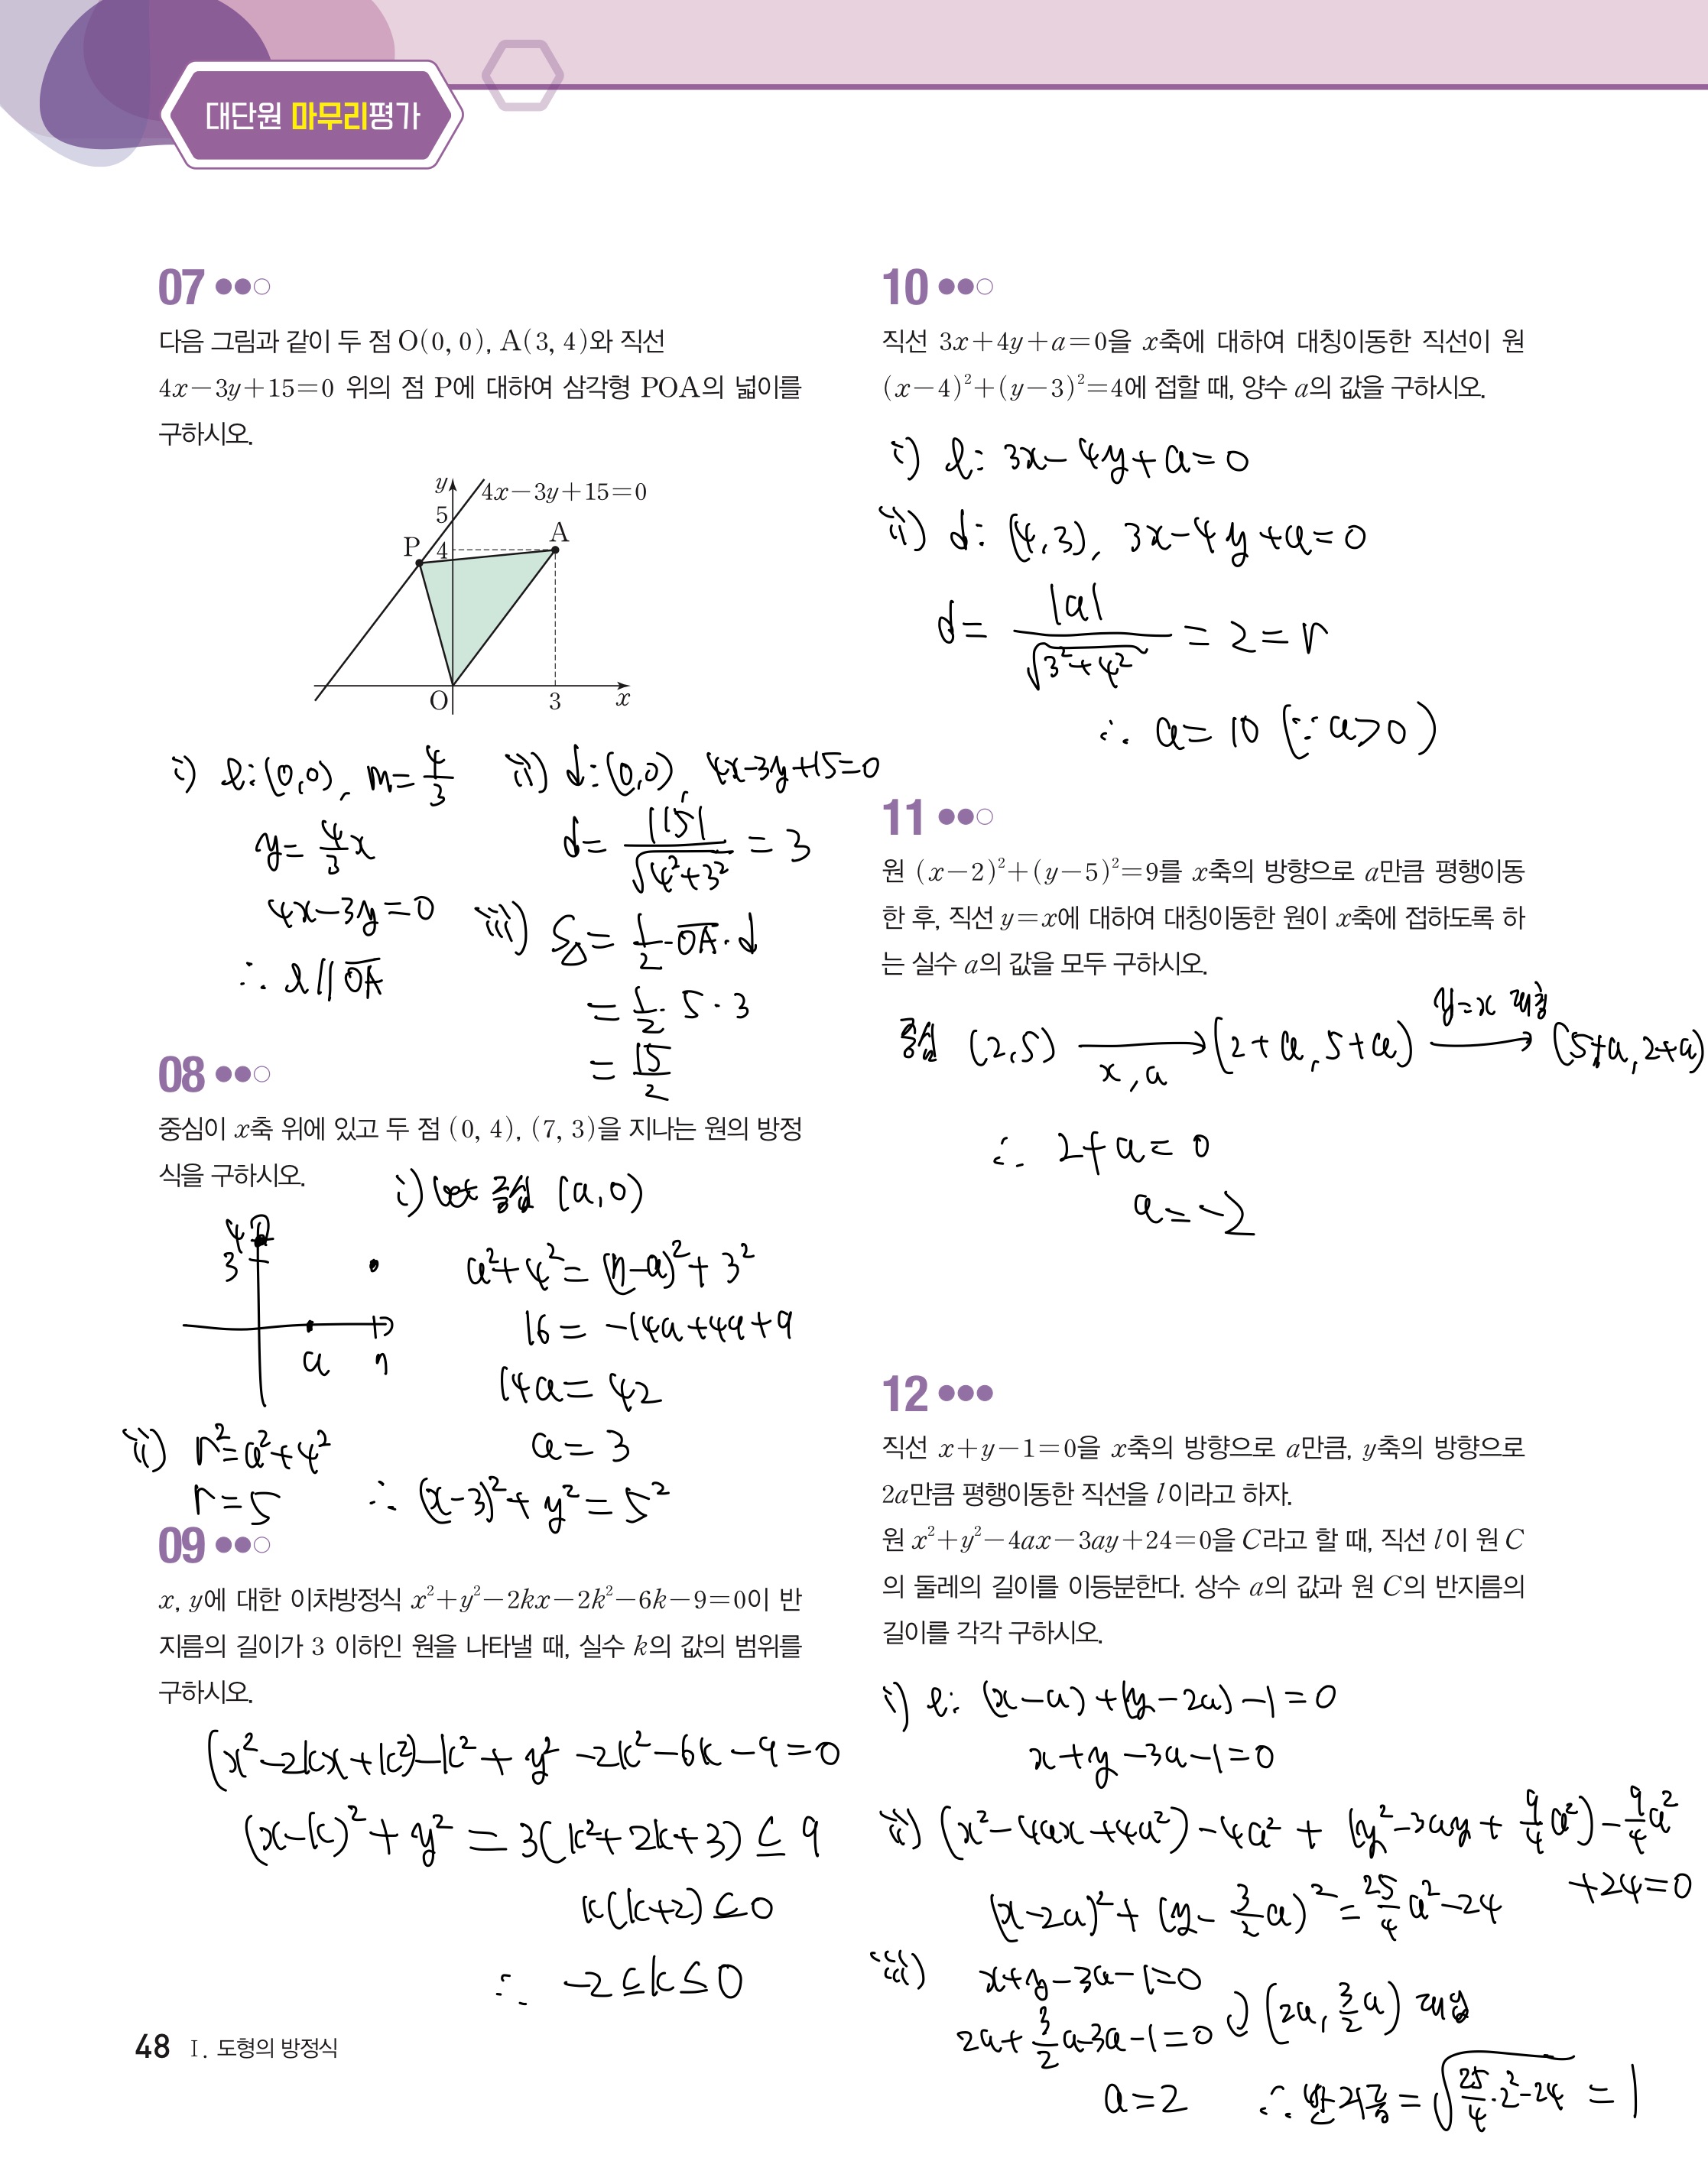 대단원 마무리평가
07
다음 그림과 같이 두 점 O(0, 0), A(3, 4)와 직선
4x-3y+15=0 위의 점 P에 대하여 삼각형 POA의 넓이를
구하시오.
y
4x-3y+15=0
5
P
4
A
O
3
x
i) l: (0,0), m=4/3
y=4/3x
4x-3y=0
∴ l // OA
ii) d: (0,0), 4x-3y+15=0
d= |15|/√(4²+3²) = 3
iii) S△= 1/2·OA·d
= 1/2·5·3
= 15/2
08
중심이 x축 위에 있고 두 점 (0, 4), (7, 3)을 지나는 원의 방정
식을 구하시오.
4
3
a
7
i) let 중심 (a,0)
a²+4²=(7-a)²+3²
16=-14a+49+9
14a=42
a=3
ii) r²=a²+4²
r=5
∴ (x-3)²+y²=5²
09
x, y에 대한 이차방정식 x²+y²-2kx-2k²-6k-9=0이 반
지름의 길이가 3 이하인 원을 나타낼 때, 실수 k의 값의 범위를
구하시오.
(x²-2kx+k²)-k²+y²-2k²-6k-9=0
(x-k)²+y²=3(k²+2k+3)≤9
k(k+2)≤0
∴ -2≤k≤0
48 Ⅰ. 도형의 방정식
10
직선 3x+4y+a=0을 x축에 대하여 대칭이동한 직선이 원
(x-4)²+(y-3)²=4에 접할 때, 양수 a의 값을 구하시오.
i) l: 3x-4y+a=0
ii) d: (4,3), 3x-4y+a=0
d= |a|/√(3²+4²) = 2 = r
∴ a=10 (∵a>0)
11
원 (x-2)²+(y-5)²=9를 x축의 방향으로 a만큼 평행이동
한 후, 직선 y=x에 대하여 대칭이동한 원이 x축에 접하도록 하
는 실수 a의 값을 모두 구하시오.
중심 (2,5) → x, a (2+a, 5+a) → y=x 대칭 (5+a, 2+a)
∴ 2+a=0
a=-2
12
직선 x+y-1=0을 x축의 방향으로 a만큼, y축의 방향으로
2a만큼 평행이동한 직선을 l이라고 하자.
원 x²+y²-4ax-3ay+24=0을 C라고 할 때, 직선 l이 원 C
의 둘레의 길이를 이등분한다. 상수 a의 값과 원 C의 반지름의
길이를 각각 구하시오.
i) l: (x-a)+(y-2a)-1=0
x+y-3a-1=0
ii) (x²-4ax+4a²)-4a²+(y²-3ay+9/4a²)-9/4a²
+24=0
(x-2a)²+(y-3/2a)²=25/4a²-24
iii) x+y-3a-1=0
(2a, 3/2a) 대입
2a+3/2a-3a-1=0
a=2
∴ 반지름=√(25/4·2²-24) = 1